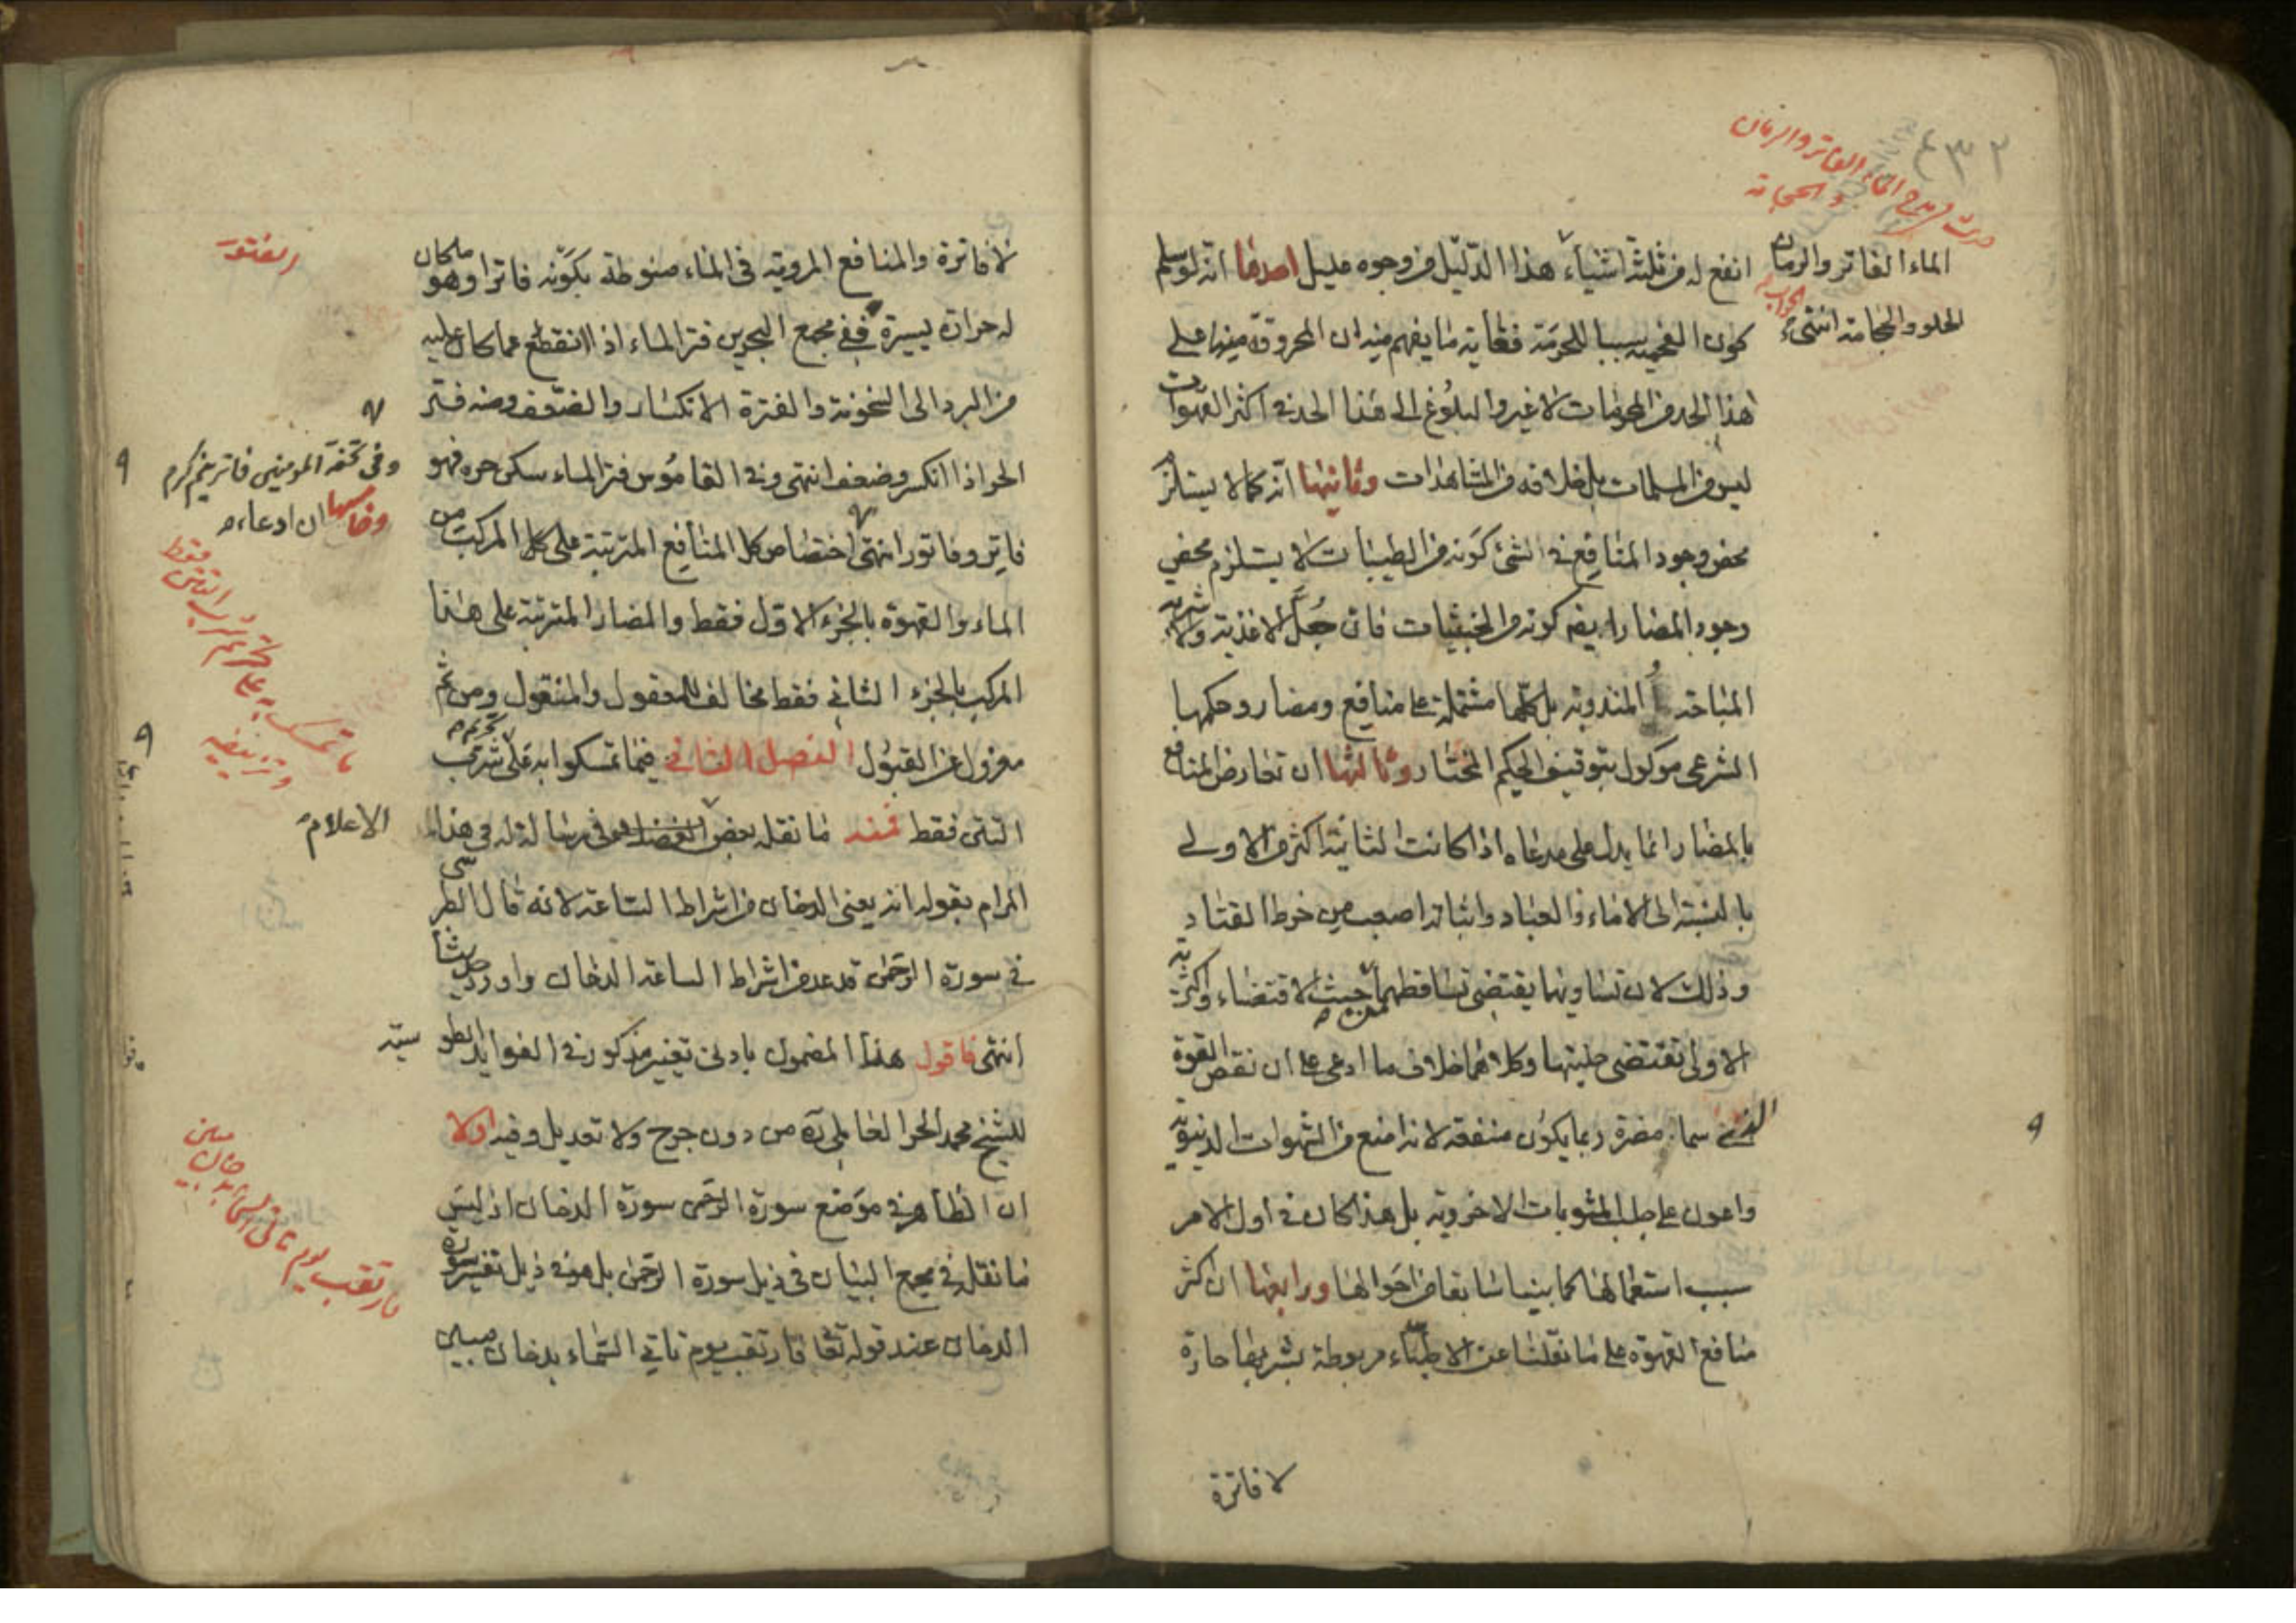 ٤٣٢
حديث في مدح الماء الفاتر والرمان
والحجامة
الماء الفاتر والرمان
الحلو والحجامة انتهى
الجواب
انفع له من ثلثة اشياء هذا الدليل من وجوه عليل احدها انه لو سلم
كون الفحمية سببا للحرمة فغاية ما يفهم منه ان المحروقة منها على
هذا الحد من المحرمات لا غير والبلوغ الى هذا الحد في اكثر القهوات
ليس من المسلمات بل خلافه من المشاهدات وثانيها انه كما لا يستلزم
محض وجود المنافع في الشئ كونه من الطيبات لا يستلزم محض
وجود المضار ايضا كونه من الخبيثات فان جل الاغذية والاشربة
المباحة المندوبة بل كلها مشتملة على منافع ومضار وحكمها
الشرعي موكول بتوقيف الحكيم المختار وثالثها ان تعارض المنافع
بالمضار انما يدل على مدعاه اذا كانت الثانية اكثر من الاولى
بالنسبة الى الاماء والعباد واثباته اصعب من خرط القتاد
وذلك لان تساويهما يقتضى تساقطهما من حيث الاقتضاء واكثرية
الاولى تقتضى حليتها وكلاهما خلاف ما ادعى على ان نقص القوة
سما مضرة ربما يكون منفعة لانه امنع من الشهوات الدنيوية
واعون على طلب المثوبات الاخروية بل هذا كان في اول الامر
سبب استعمالها كما بينا سابقا من احوالها ورابعها ان اكثر
منافع القهوة على ما نقلنا عن الاطباء مربوطة بشربها حارة
لا فاترة
لا فاترة والمنافع المروية في الماء منوطة بكونه فاترا وهو ما كان
له حرارة يسيرة ففي مجمع البحرين فتر الماء اذا انقطع عما كان عليه
من البرد الى السخونة والفترة الانكسار والضعف ومنه فتر
الحر اذا انكسر وضعف انتهى وفي القاموس فتر الماء سكن حره فهو
فاتر وفاتور انتهى اختصاص كل المنافع المترتبة على كل المركب من
الماء والقهوة بالجزء الاول فقط والمضار المترتبة على هذا
المركب بالجزء الثاني فقط مخالف للمعقول والمنقول ومن ثم
معزول عن القبول الفصل الثاني فيما تمسكوا به على تحريم شرب
التتن فقط فمنه ما نقله بعض الفضلاء في رسالة له في هذا
المرام بقوله انه يعنى الدخان من اشراط الساعة لانه قال الطبرسى
في سورة الرحمن قد عد من اشراط الساعة الدخان واورد حديثا
انتهى فاقول هذا المضمون بادنى تغيير مذكور في الفوايد الطوسية
للشيخ محمد الحر العاملي ره من دون جرح ولا تعديل وفيه اولا
ان الظاهر في موضع سورة الرحمن سورة الدخان اذ ليس
ما نقله في مجمع البيان في ذيل سورة الرحمن بل هو في ذيل تفسير سورة
الدخان عند قوله تعا فارتقب يوم تاتي السماء بدخان مبين
الفتور
وفي تحفة المومنين فاتر نيم كرم
وخامسها ان ادعاء
ما تمسك به على تحريم شرب التتن فقط
وتزييفه
الاعلام
فارتقب يوم تاتي السماء بدخان مبين